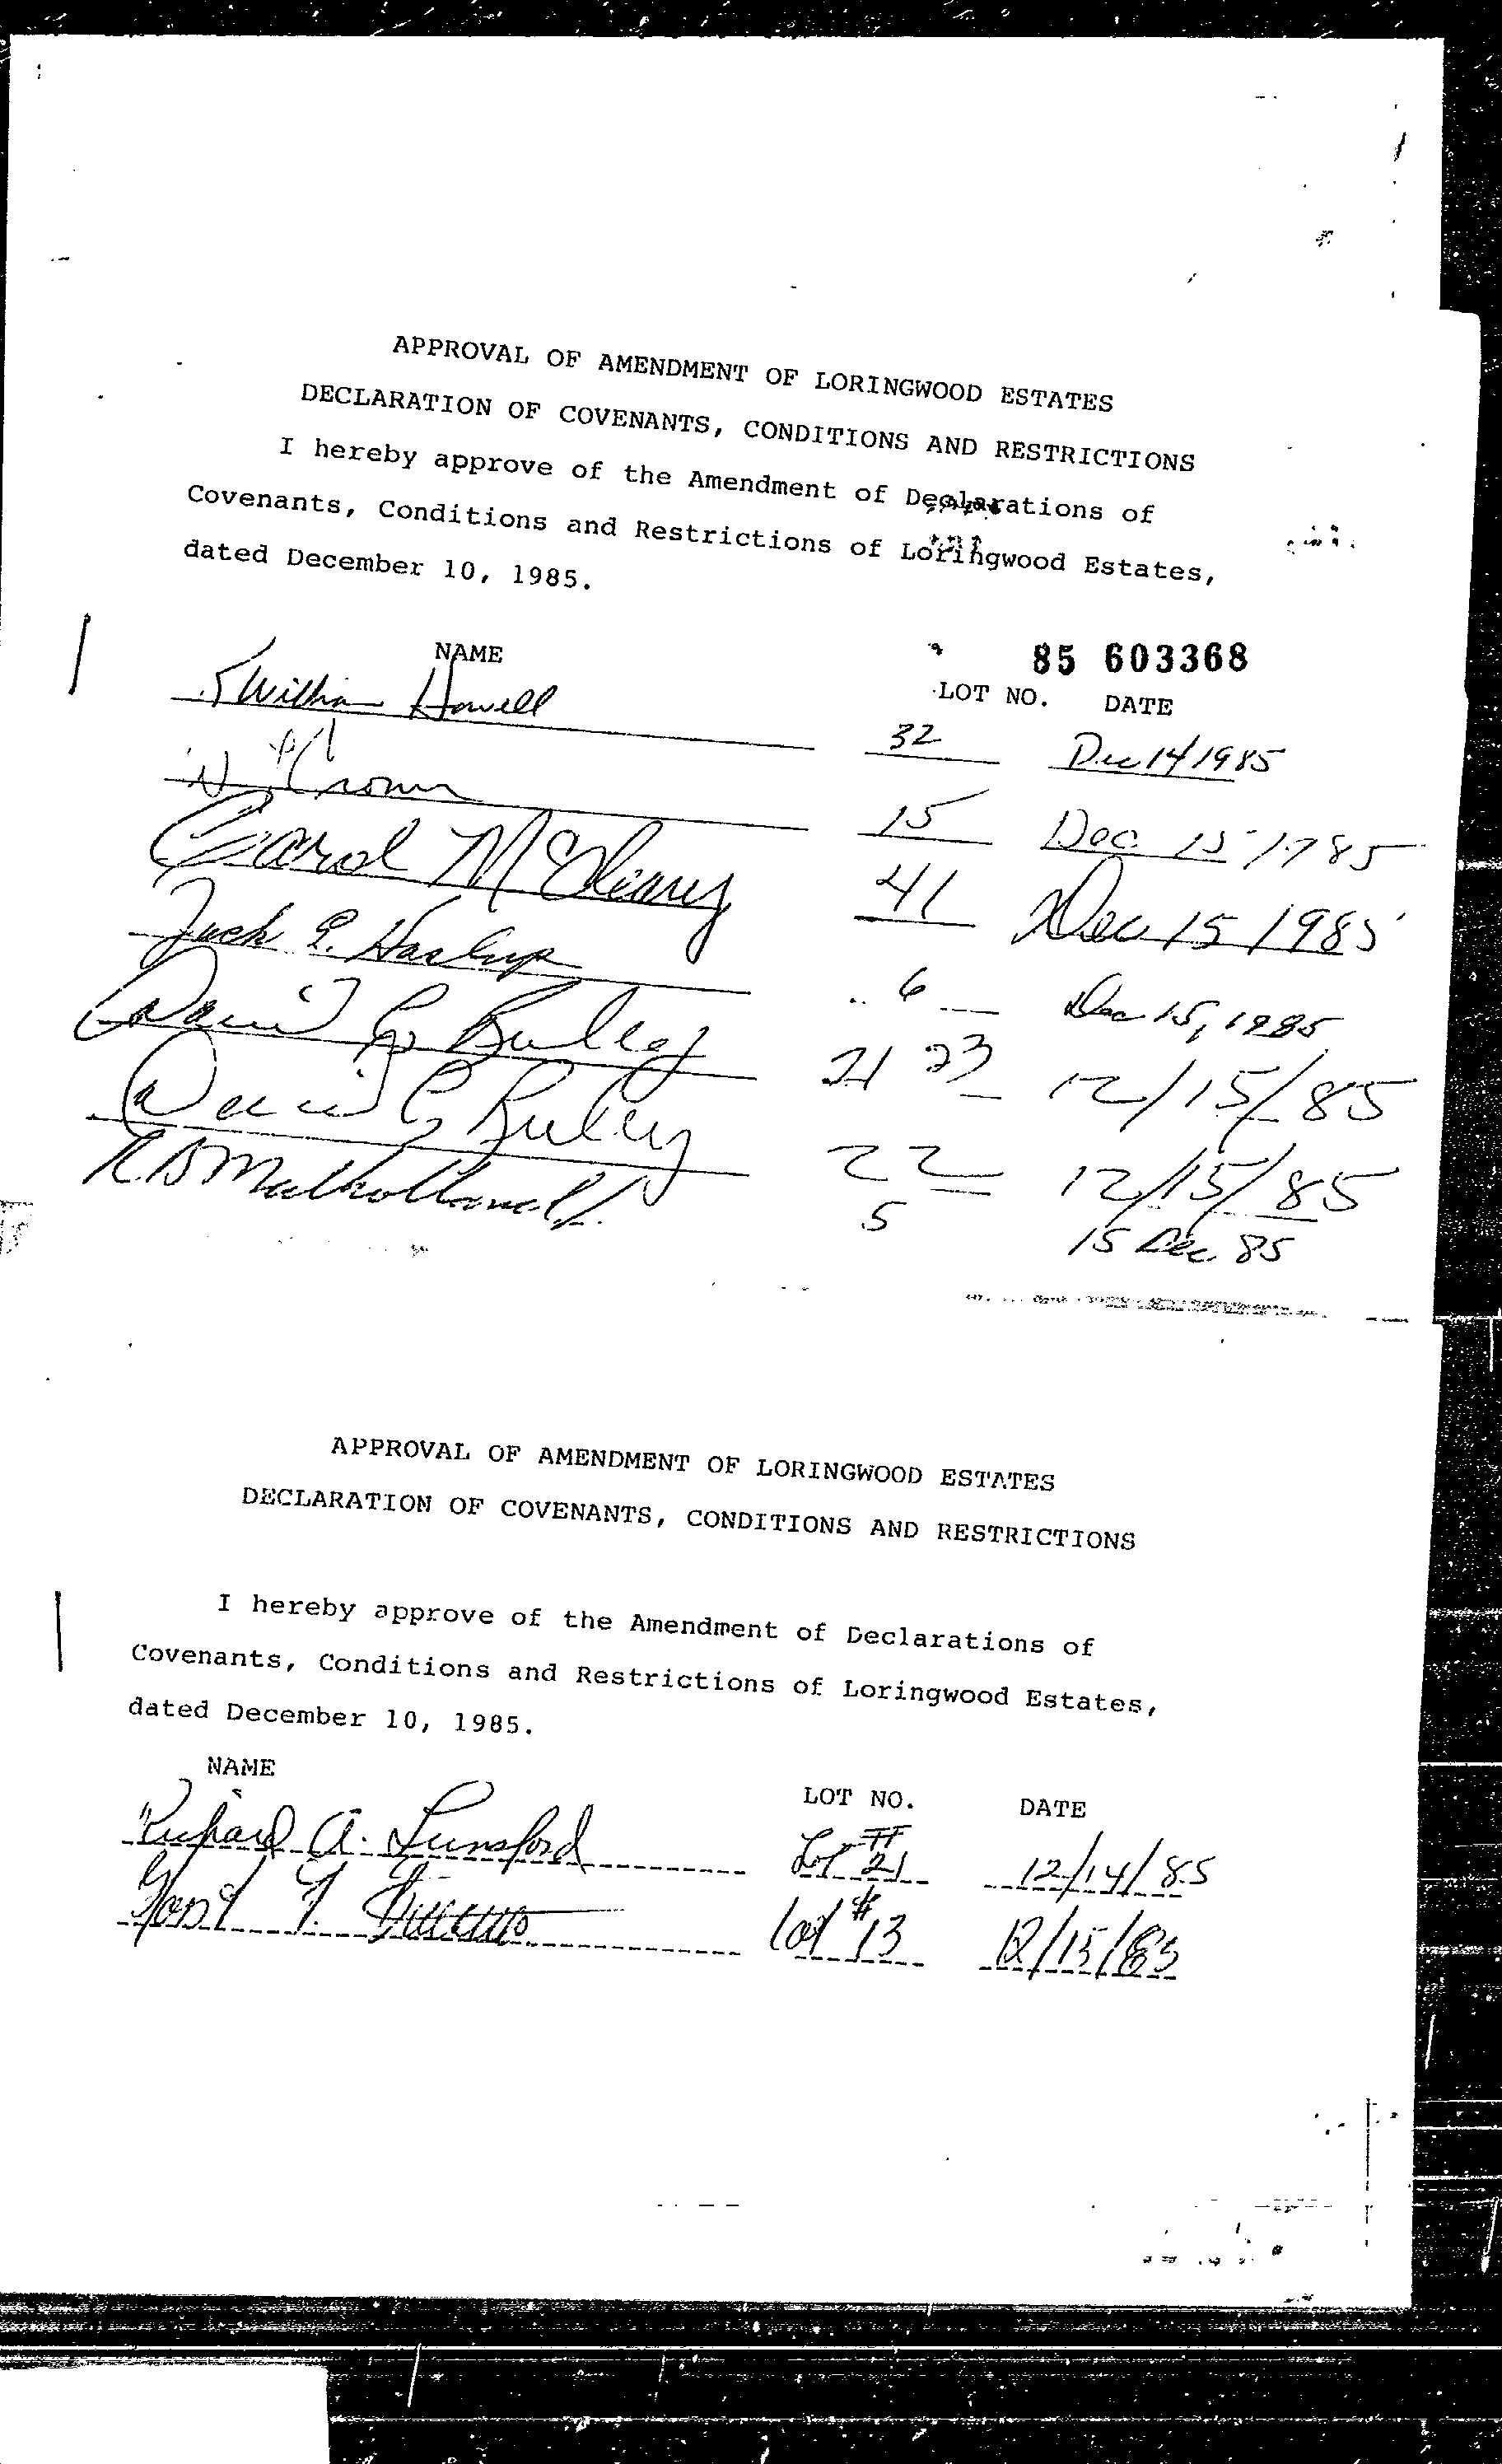 APPROVAL OF AMENDMENT OF LORINGWOOD ESTATES
DECLARATION OF COVENANTS, CONDITIONS AND RESTRICTIONS
I hereby approve of the Amendment of Declarations of
Covenants, Conditions and Restrictions of Loringwood Estates,
dated December 10, 1985.
85 603368
NAME LOT NO. DATE
William Howell 32 Dec 14 1985
15 Dec 15 1985
Carol McCleary 41 Dec 15 1985
Jack E. Haslup 6 Dec 15, 1985
David G Bulley 21 23 12/15/85
David G Bulley 22 12/15/85
R B Mulholland 5 15 Dec 85
APPROVAL OF AMENDMENT OF LORINGWOOD ESTATES
DECLARATION OF COVENANTS, CONDITIONS AND RESTRICTIONS
I hereby approve of the Amendment of Declarations of
Covenants, Conditions and Restrictions of Loringwood Estates,
dated December 10, 1985.
NAME LOT NO. DATE
Richard A. Lunsford Lot # 21 12/14/85
Lot #13 12/15/85